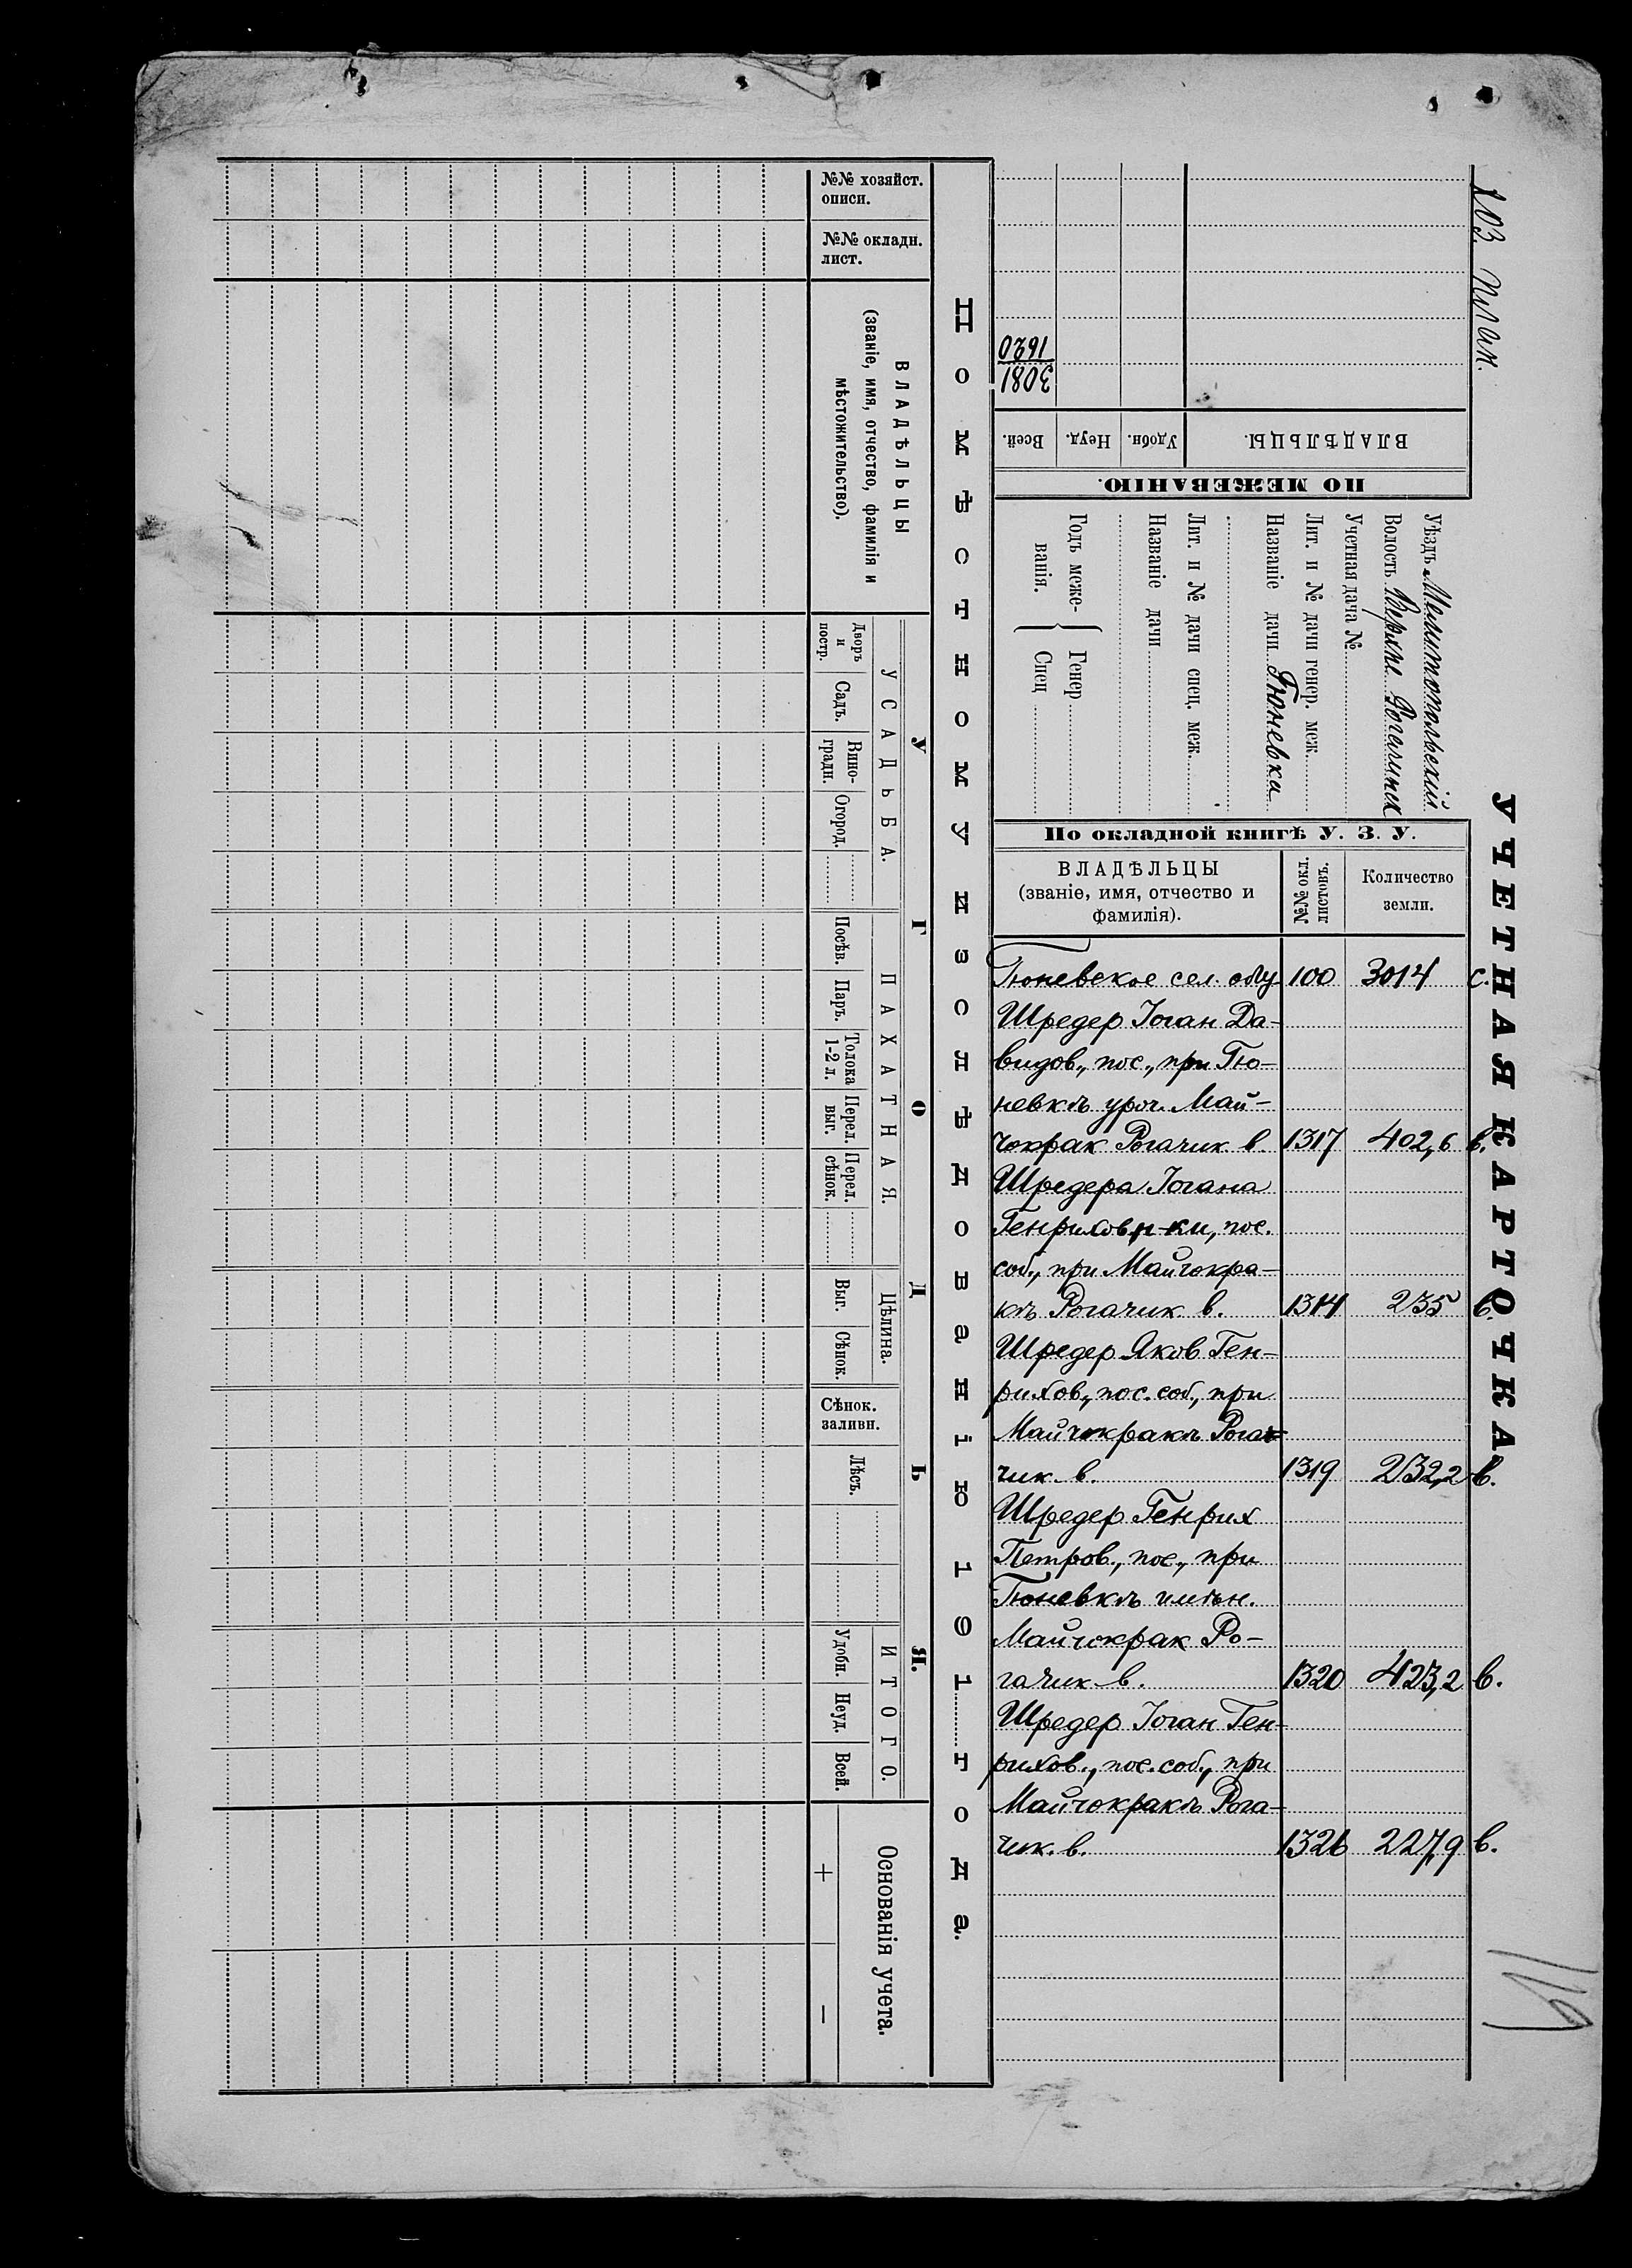 103. план.
УЧЕТНАЯ КАРТОЧКА
Уѣздъ Мелитопольскій
Волость Верхне Рогачикск
Учетная дача №
Лит. и № дачи генер. меж.
Названіе дачи Гюневка
Лит. и № дачи спец. меж.
Названіе дачи
Годъ меже-
ванія.
Генер
Спец
ПО МЕЖЕВАНІЮ.
ВЛАДѢЛЬЦЫ.
Удобн.
Неуд.
Всей.
3081
1620
По окладной книгѣ У. З. У.
ВЛАДѢЛЬЦЫ
(званіе, имя, отчество и
фамилія).
№№ окл.
листовъ.
Количество
земли.
Гюневское сел. общ 100 3014 с.
Шредер Іоган Да-
видов., пос., при Гю-
невкѣ уроч. Май-
чокрак Рогачик в 1317 402,6 в.
Шредера Іогана
Генрихов. н-ки, пос.
соб., при Майчокра-
кѣ Рогачик в. 1314 235 в.
Шредер Яков Ген-
рихов., пос. соб., при
Майчокракѣ Рога-
чик. в. 1319 232,2 в.
Шредер Генрих
Петров., пос., при
Гюневкѣ имѣн.
Майчокрак Ро-
гачик в. 1320 423,2 в.
Шредер Іоган Ген-
рихов., пос. соб., при
Майчокракѣ Рога-
чик. в. 1326 227,9 в.
Помѣстному изслѣдованію 191 года.
№№ хозяйст.
описи.
№№ окладн.
лист.
ВЛАДѢЛЬЦЫ
(званіе, имя, отчество, фамилія и
мѣстожительство).
УГОДЬЯ.
УСАДЬБА.
Дворъ
и
постр.
Садъ.
Вино-
градн.
Огород.
ПАХАТНАЯ.
Посѣв.
Паръ.
Толока
1-2 л.
Перел.
выг.
Перел.
сѣнок.
Цѣлина.
Выг.
Сѣнок.
Сѣнок.
заливн.
Лѣсъ.
ИТОГО.
Удобн.
Неуд.
Всей.
Основанія учета.
+
−